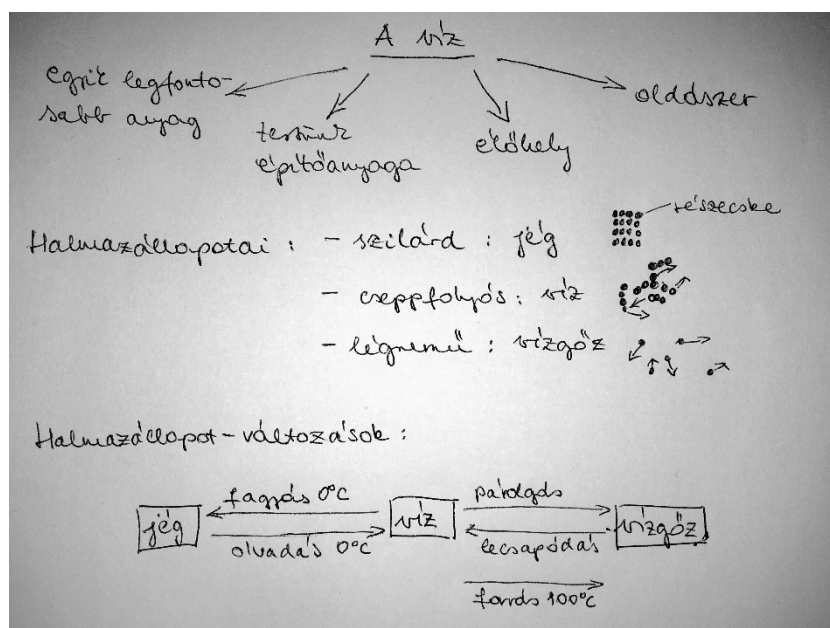 A víz
egyik legfonto-
sabb anyag
testünk
építőanyaga
élőhely
oldószer
Halmazállapotai : - szilárd : jég
részecske
- cseppfolyós : víz
- légnemű : vízgőz
Halmazállapot-változások :
jég
fagyás 0°C
olvadás 0°C
víz
párolgás
lecsapódás
forrás 100°C
vízgőz